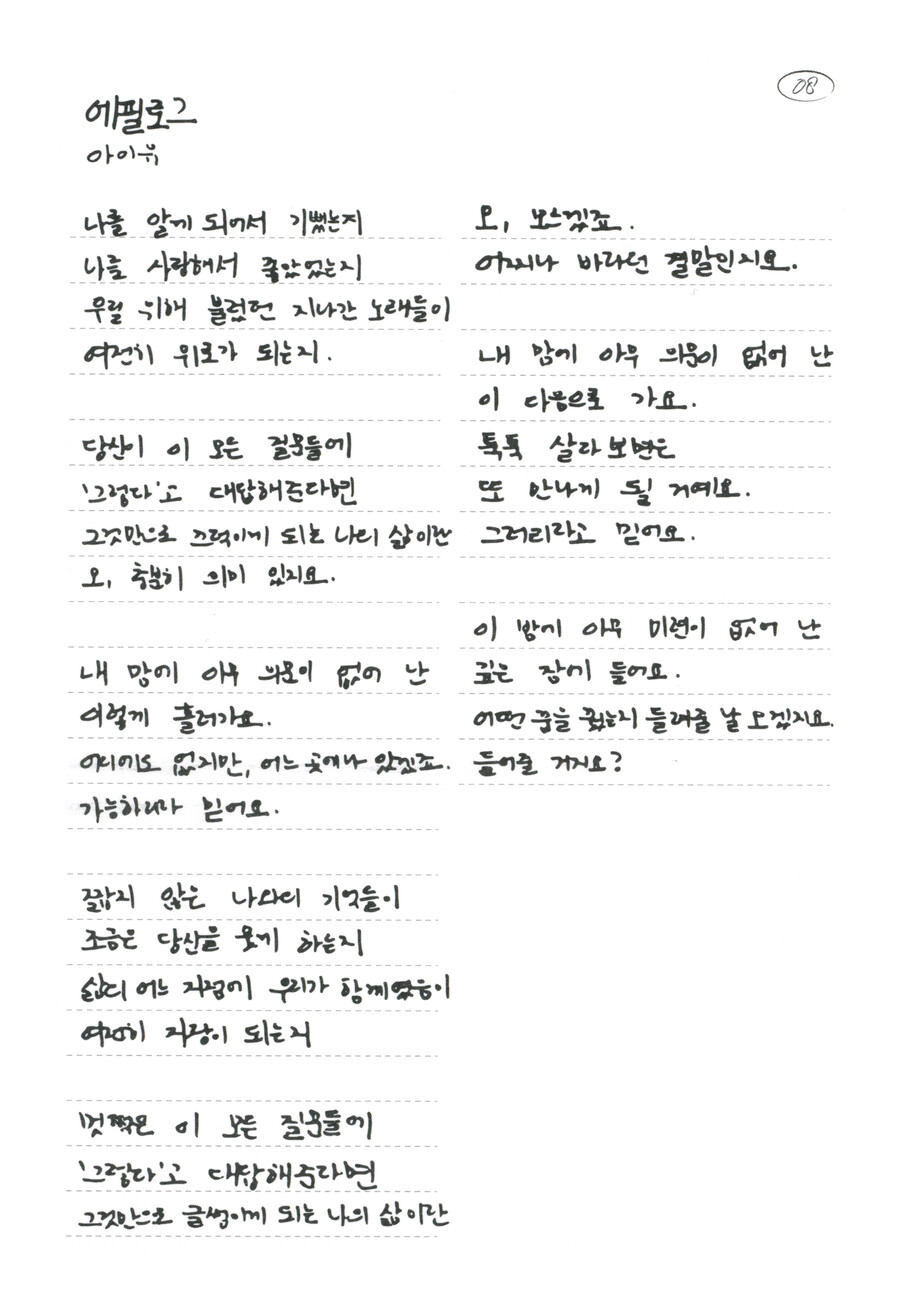 08
에필로그
아이유
나를 알게 되어서 기뻤는지
나를 사랑해서 좋았었는지
우릴 위해 불렀던 지나간 노래들이
여전히 위로가 되는지.
당신이 이 모든 질문들에
'그렇다'고 대답해준다면
그것만으로 끄덕이게 되는 나의 삶이란
오, 충분히 의미 있지요.
내 맘에 아무 의문이 없어 난
이렇게 흘러가요.
어디에도 없지만, 어느 곳에나 있겠죠.
가능하리라 믿어요.
짧지 않은 나와의 기억들이
조금은 당신을 웃게 하는지
삶의 어느 지점에 우리가 함께였음이
여전히 자랑이 되는지
멋쩍은 이 모든 질문들에
'그렇다'고 대답해준다면
그것만으로 글썽이게 되는 나의 삶이란
오, 모르겠죠.
어찌나 바라던 결말인지요.
내 맘에 아무 의문이 없어 난
이 다음으로 가요.
툭툭 살다 보면은
또 만나게 될 거예요.
그러리라고 믿어요.
이 밤에 아무 미련이 없어 난
깊은 잠에 들어요.
어떤 꿈을 꿨는지 들려줄 날 오겠지요.
들어줄 거지요?